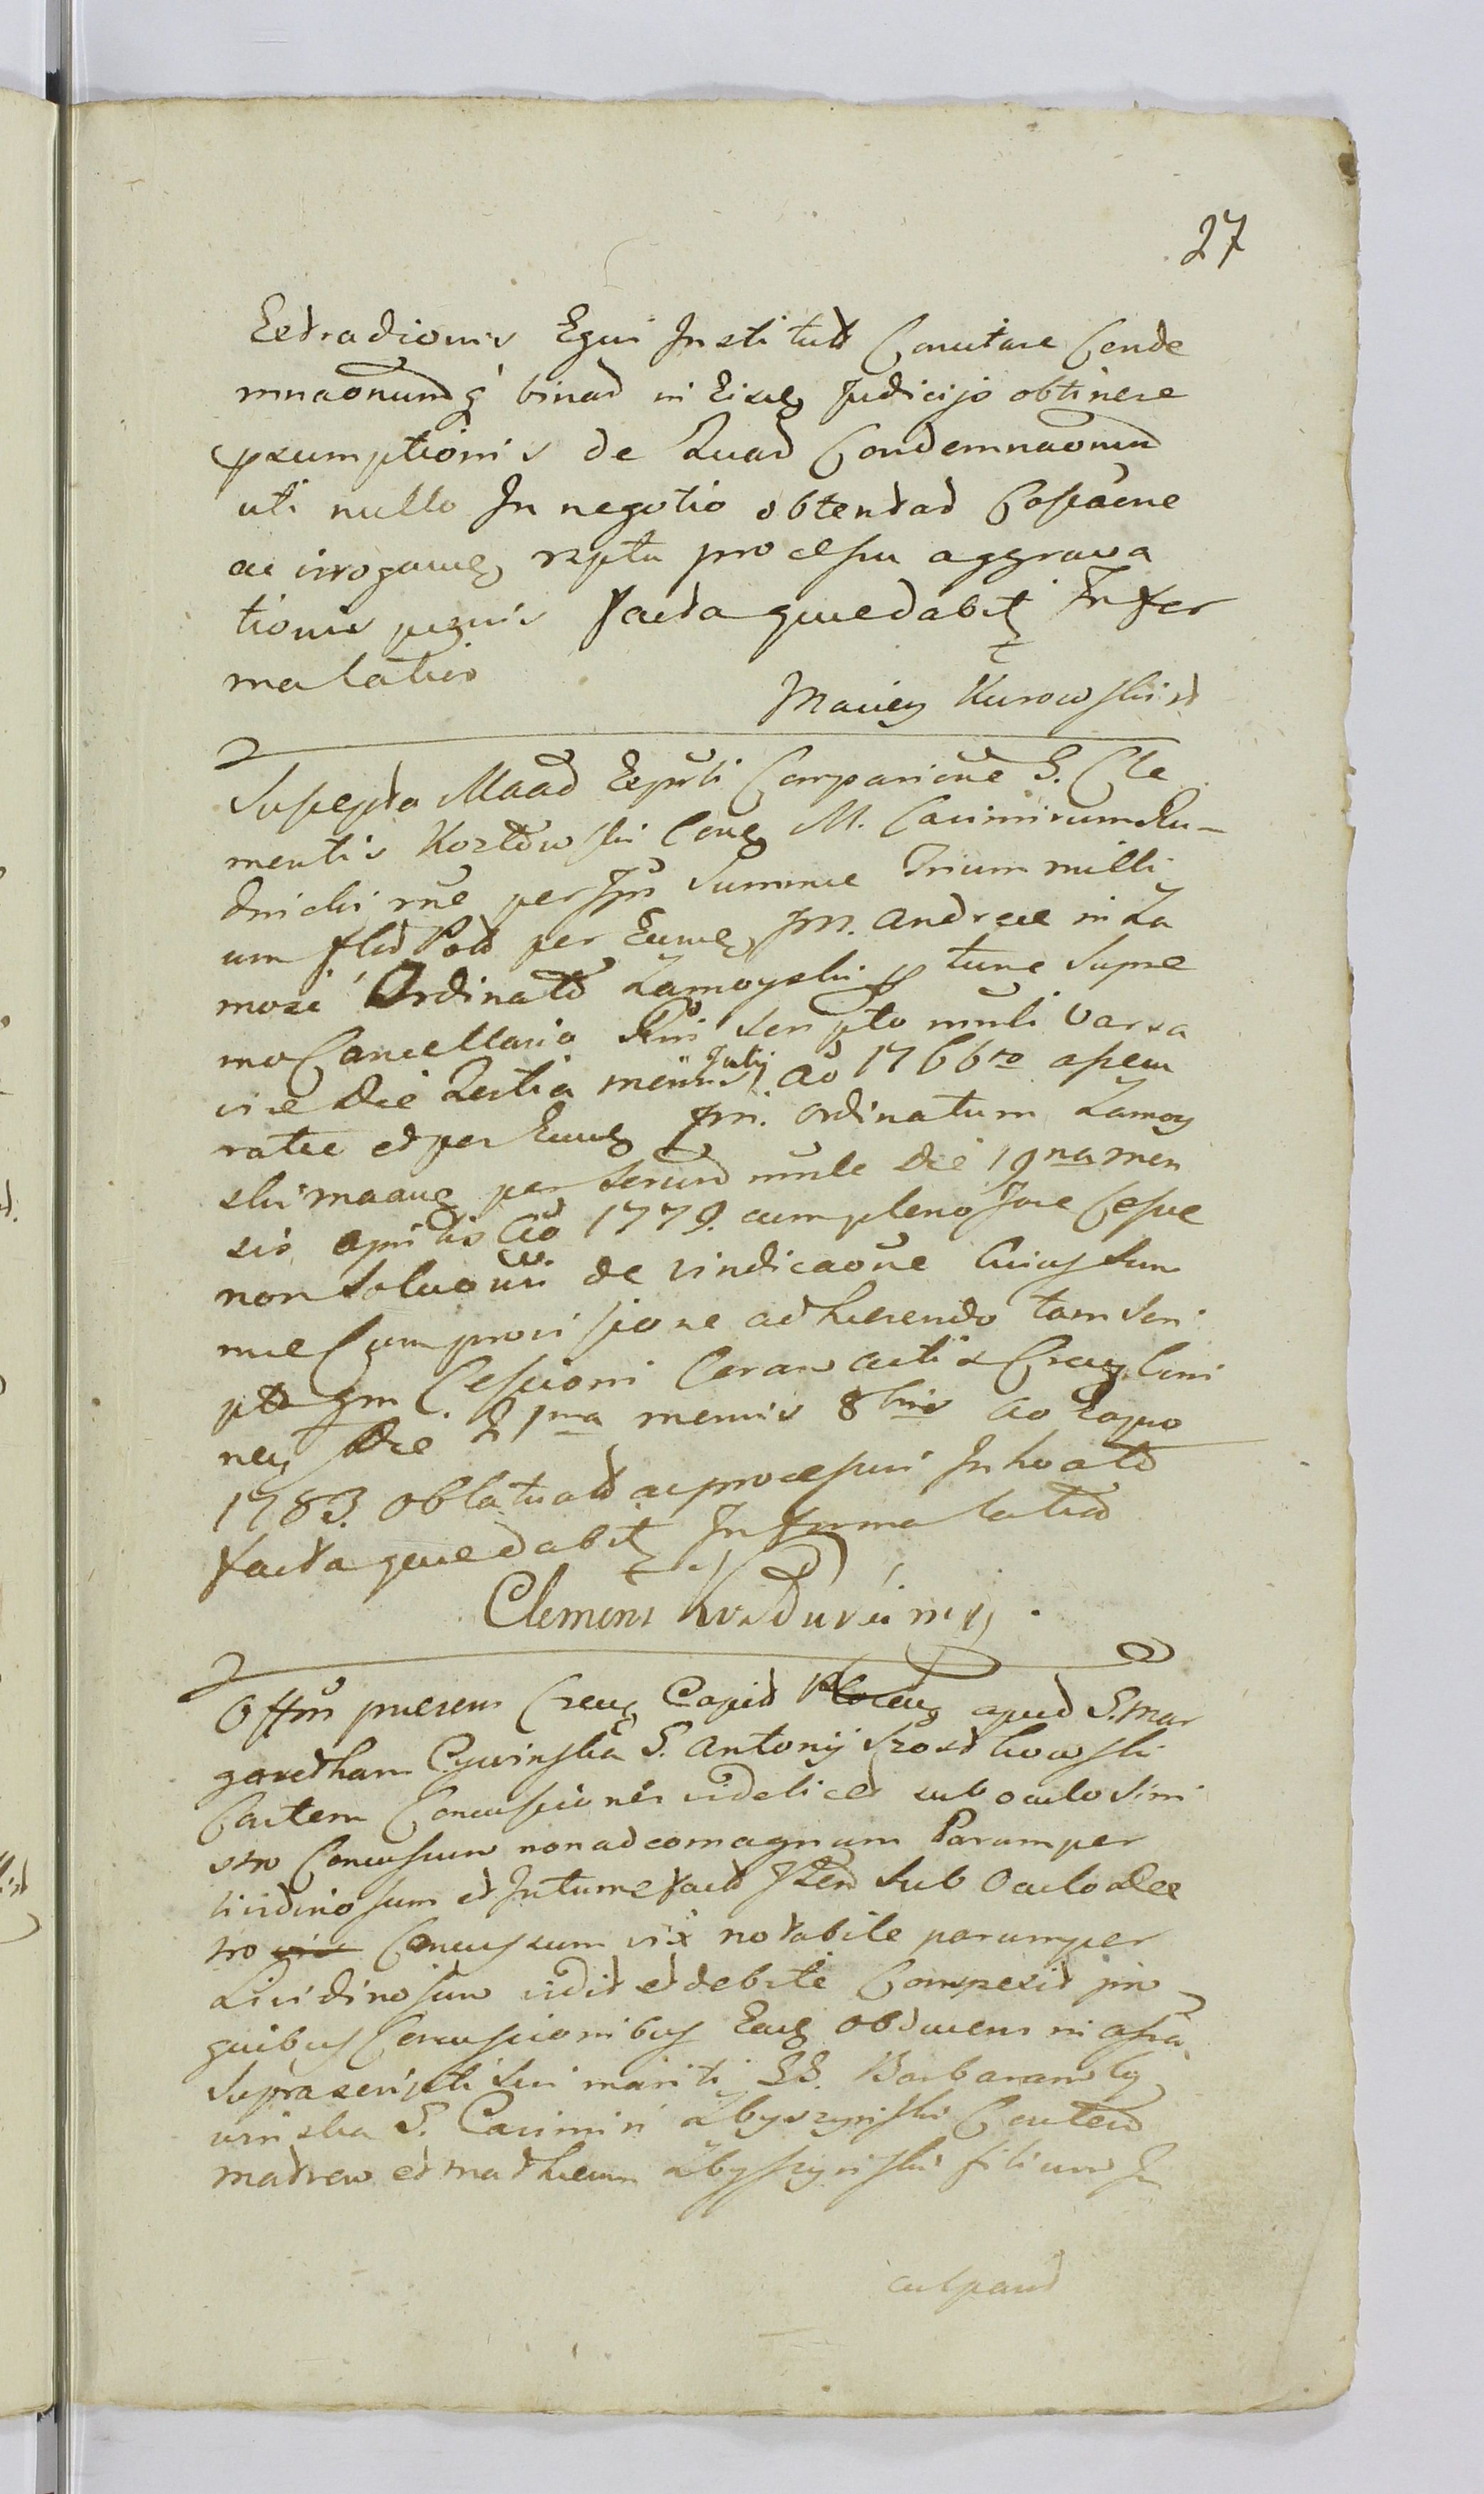 27
Extradionis Equi Institutt Comitare Conde
mnaonumq binad in Eisdq Judicijo obtinere
psumptionis de Quad Condemnaonum
uti nullo In negotio obtentad Cassaone
ac irrogaveq rptu processu aggrava
tionis pgnis facta quue dabit Infor
ma latius
Maciey Kurowski
Suscepta Maad Exputi Comparicone G. Cle
mentis Kozłowski Coneq M. Casimirum Ru-
dnicki rne per Ipm Summe Trium milli
um flld Pold per Eumq Jm. Andreae in Za
mosć Ordinatt Zamoyski p tunc Supre
mo Cancellario Rni scripto mnli Varsa
viae Die Tertia mensis Julij Ao 1766to assecu
ratae et per Eumq Jm. Ordinatum Zamoy
ski maaueq per serum mnle Die 19na men
sis Aprilis Ao 1779. cum pleno Jure Cessae
non Soluonis de vindicaone Cuius Sum
mae Cum provisione adhaerendo tam Scri
pto qm Cessioni Coram actis Crassn
Die 21ma mensis 8bris Ao Eoquo
1783. oblatuatt ac processui Inhoatt
facta quue dabit Informa latius
Clemens Kozłowski mp
Offm praesens Capit apud G. Mar
garetham Cywinska G. Antonij Szostkowski
Contem Concussiones videlicet sub oculo Sini
stro Concussum non adeo magnum Parumper
lividinosum et Intumefactt Item Sub Oculo Dex
tro Concussum vix notabile parumper
Lividinosum vidit et debite Comperit pro
quibus Concussionibus Eaeq obducens in assia
Suprascripti Sui mariti GG. Barbaram Cy
winska G. Casimiri Zbyszynski Contem
matrem et Matheum Zbyszynski filium In
culpavit